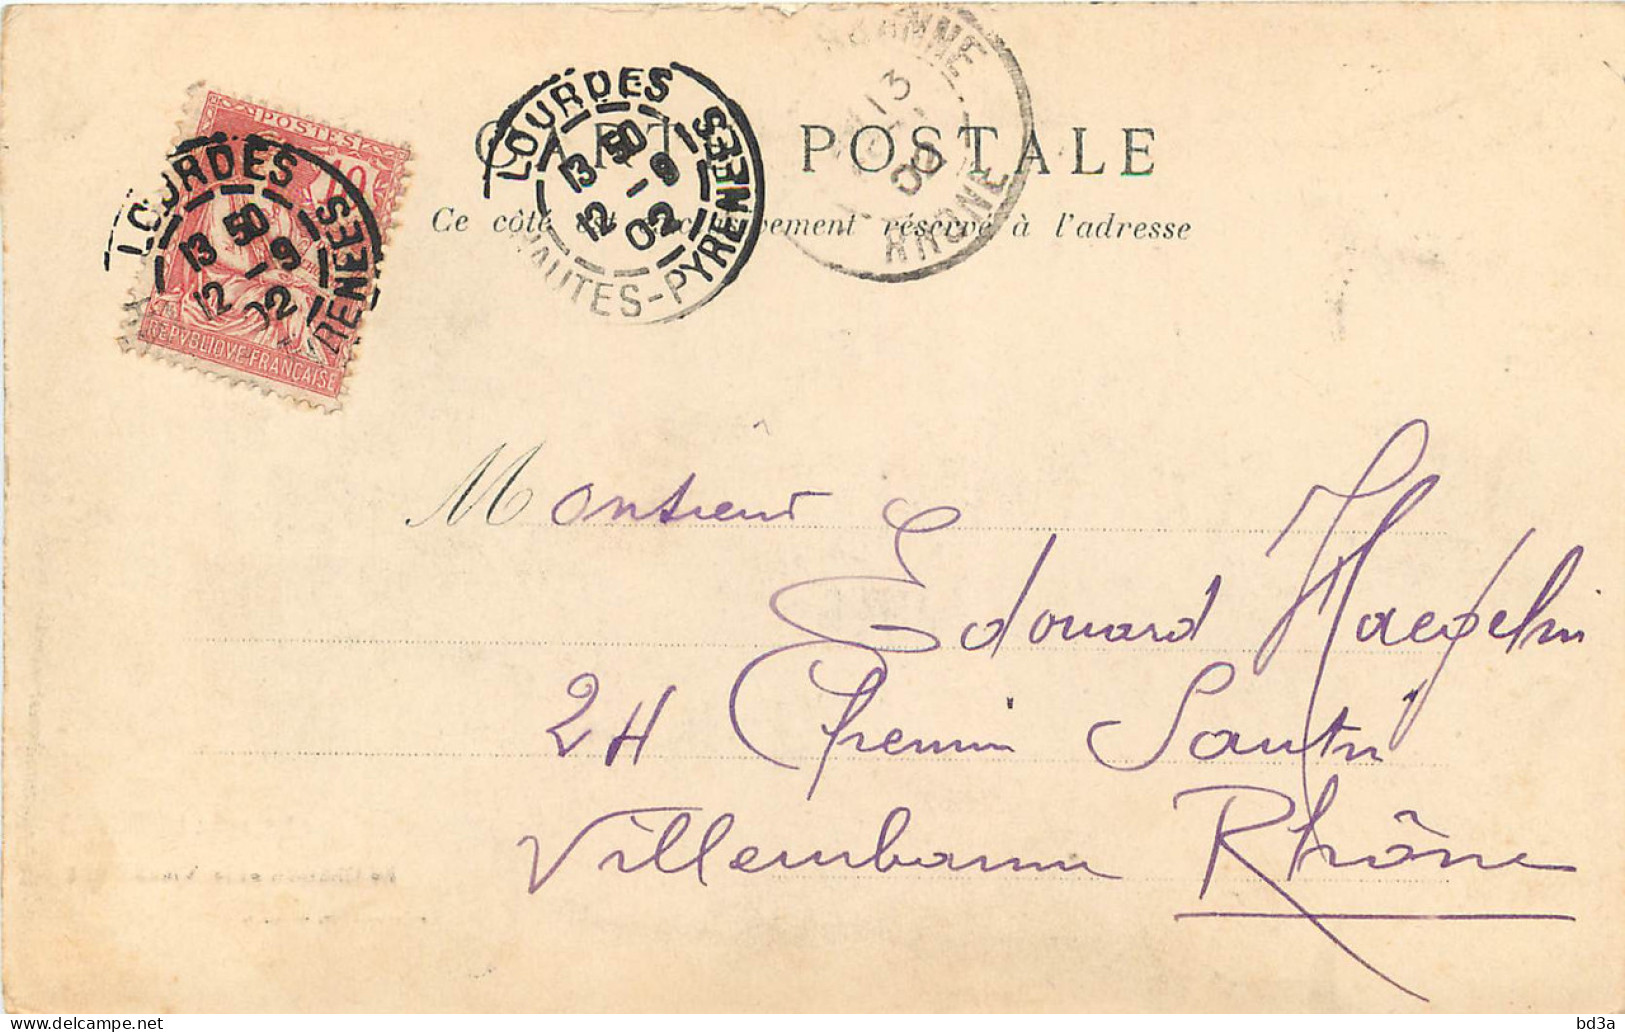 POSTES
10
REPVBLIQVE FRANÇAISE
LOURDES
13 50
12 - 9
02
RENEES
LOURDES
13 50
12 - 9
02
HAUTES-PYRENEES
13
RHONE
CARTE POSTALE
Ce côté est exclusivement réservé à l'adresse
Monsieur
Edouard Haegelin
24 Chemin
Villeurbanne Rhône
bd3a